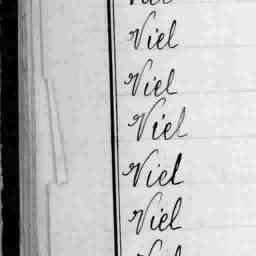 Viel
Viel
Viel
Viel
Viel